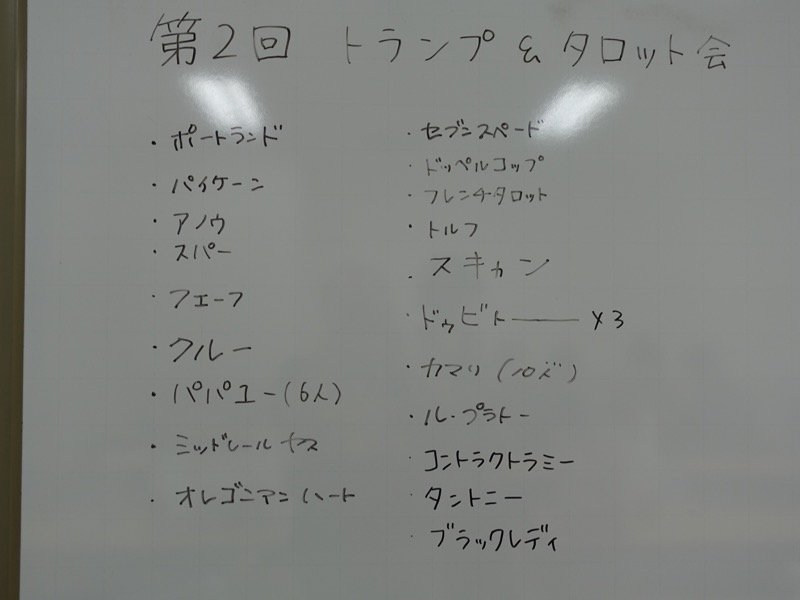 第2回 トランプ & タロット会
・ポートランド
・パイケーン
・アノウ
・スパー
・フェーフ
・クルー
・パパユー(6人)
・ミッドレール ヤス
・オレゴニアンハート
・セブンスペード
・ドッペルコップ
・フレンチタロット
・トルフ
・スキャン
・ドゥビト――― ×3
・カマリ (10ズ)
・ル・プラトー
・コントラクトラミー
・タントニー
・ブラックレディ